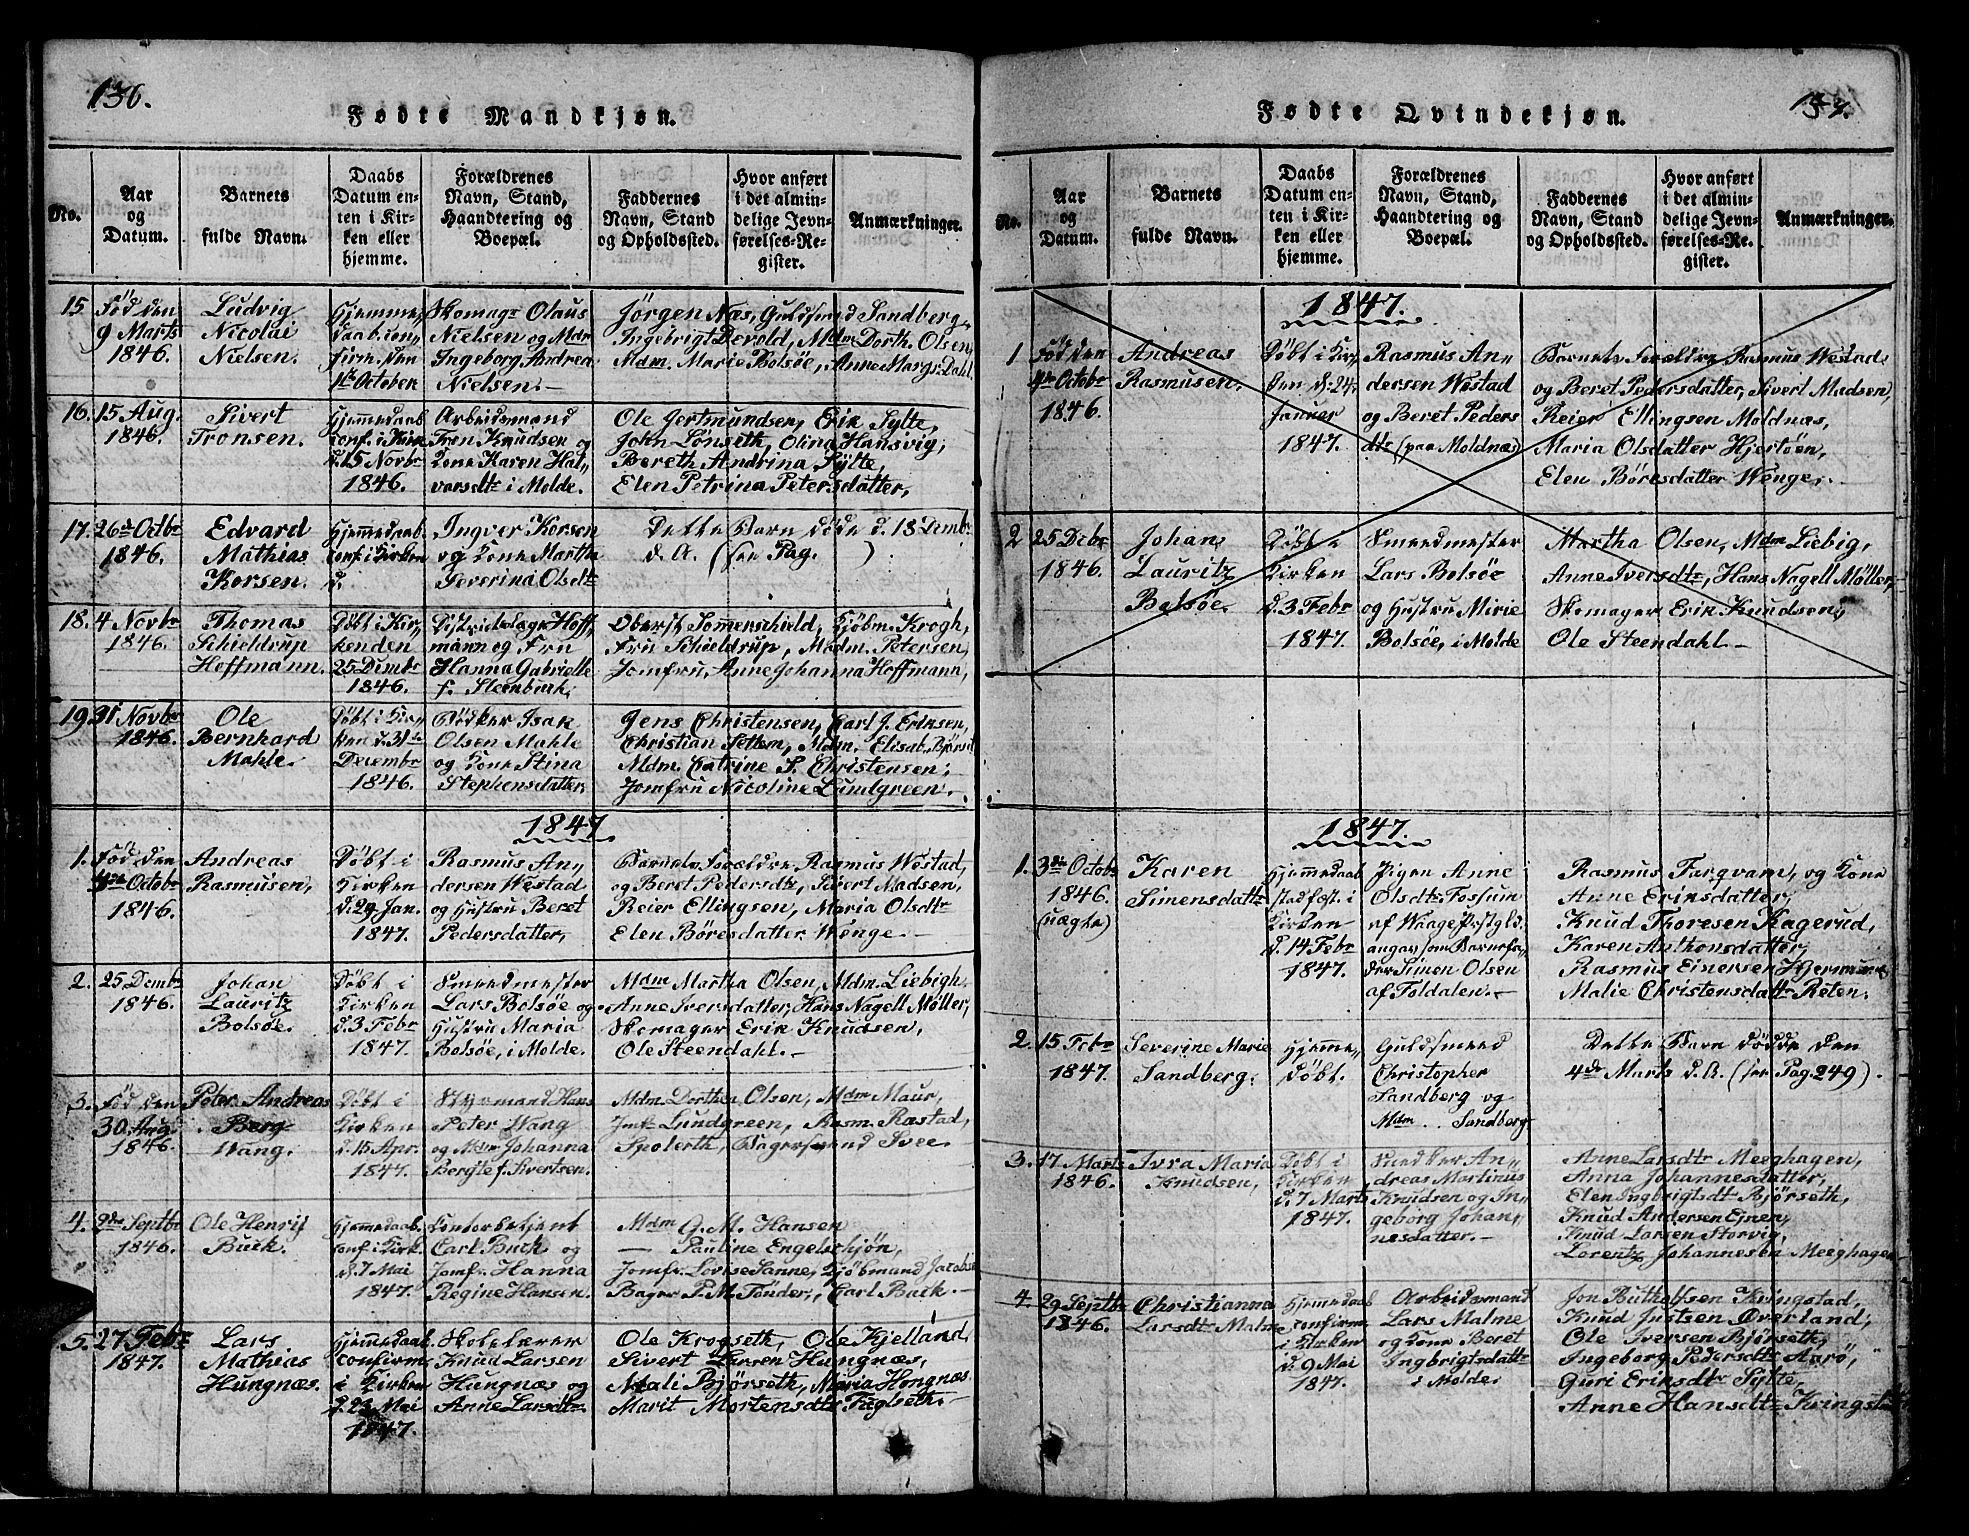 136.
Fødte Mandkjøn.
No.
Aar
og
Datum.
Barnets
fulde Navn.
Daabs
Datum en-
ten i Kir-
ken eller
hjemme.
Forældrenes
Navn, Stand,
Haandtering og
Boepæl.
Faddernes
Navn, Stand
og Opholdssted.
Hvor anført
i det almin-
delige Jevn-
førelses-Re-
gister.
Anmærkninger.
15.
Föd den
9 Marts
1846.
Ludvig
Nicolai
Nielsen.
Hjemme,
daab, con,
firm. den
1te October
Skomagr Olaus
Nielsen og Mdm
Ingeborg Andrea
Nielsen.—
Jörgen Næs, Guldsmed Sandberg,
Ingebrigt Devold, Mdm Dorth. Olsen,
Mdm. Marie Bolsöe, Anne Margr. Dahl.
16.
15 Aug.
1846.
Sivert
Tronsen.
Hjemmedaab
conf. i Kirk
d. 15 Novbr
1846.
Arbeidsmand
Tron Knudsen og
Kone Karen Hal,
varsdtr i Molde.
Ole Jertmundsen, Erik Sylte,
John Lönseth, Olina Hansvig,
Bereth Andrina Sylte,
Elen Petrina Petersdatter,
17.
26de Octbr
1846.
Edvard
Mathias
Korsen.
Hjemmedaab
conf. i Kirken
d.
Ingver Korsen
og Kone Martha
Severina Olsdtr
Dette Barn döde d. 18 Dembr
d. A. (see Pag. )
18.
4 Novbr
1846.
Thomas
Schieldrup
Hoffmann.
Döbt i Kir,
kenden
25 Dembr
1846.
Districtslægr Hoff,
mann og Fru
Hanna Gabrielle
f. Stenbuch,
Oberst Sommerschield, Kjöbm. Krogh,
Fru Schieldrup, Madm. Petersen,
Jomfru, Anne Johanna Hoffmann,
19.
31 Novbr
1846.
Ole
Bernhard
Mahle.
Döbt i Kir,
ken d. 31te
Decembr
1846.
Bödker Isak
Olsen Mahle
og Kone Stina
Stephensdatter,
Jens Christensen, Carl J. Eriksen,
Christian Settem, Mdm. Elisab. Björset
Mdm. Catrine S. Christensen,
Jomfru Nicoline Lindgreen.
1847
1.
Föd den
4de Octobr
1846.
Andreas
Rasmusen,
Döbt i
Kirken
d. 29 Jan.
1847.
Rasmus An,
dersen Westad
og Hustru Beret
Pedersdatter,
Barnets Forældre, Rasmus Westad,
og Beret Pedersdtr, Sivert Madsen,
Reier Ellingsen, Maria Olsdtr
Elen Böresdatter Wenge.—
2.
25 Dembr
1846.
Johan
Lauritz
Bolsöe.
Döbt i
Kirken
d. 3 Febr
1847.
Smedmester
Lars Bolsöe og
Hustru Maria
Bolsöe, i Molde.
Mdm Martha Olsen, Mdm. Liebigh,
Anne Iversdatter, Hans Nagell Møller,
Skomager Erik Knudsen,
Ole Steendahl.—
3.
Föd den
30 Aug.
1846.
Peter Andreas
Berg
Wang.
Döbt i
Kirken
d. 15 Apr.
1847.
Styrmand Hans
Peter Wang
og Mdm Johanna
Bergte f. Sivertsen.
Mdm. Dorthea Olsen, Mdm Maur,
Jmf. Lundgreen, Rasm. Ræstad,
Spolerth, Bagersvend Svee.
4.
9de Septbr
1846.
Ole Henrif
Buck.
Hjemmedaab.
conf. i Kirk.
d. 7 Mai
1847.
Contorbetjent
Carl Buck og
Jomfr. Hanna
Regine Hansen.
Mdm G. M. Hansen
— Pauline Engelschjön,
Jomfr. Lovise Sanne, Kjöbmand Jacobse
Bager P. M. Tönder, Carl Buck.—
5.
27 Febr
1847.
Lars
Mathias
Hungnæs.
Hjemmedaab.
confirm
i Kirken
d. 23 Mai
1847.
Skolelærer
Knud Larsen
Hungnæs og
Anne Larsdtr
Ole Krogseth, Ole Kjelland,
Sivert Larsen Hungnæs,
Mali Björseth, Maria Hongnæs
Marit Mortensdtr Fuglseth.—
137.
Fødte Qvindekjøn.
No.
Aar
og
Datum.
Barnets
fulde Navn.
Daabs
Datum en-
ten i Kir-
ken eller
hjemme.
Forældrenes
Navn, Stand,
Haandtering og
Boepæl.
Faddernes
Navn, Stand
og Opholdssted.
Hvor anført
i det almin-
delige Jevn-
førelses-Re-
gister.
Anmærkninger.
1847.
1
Föd den
4de Octobr
1846.
Andreas
Rasmusen,
Döbt i Kir,
ken d. 24
Januar
1847.
Rasmus An,
dersen Westad
og Beret Peders
dtr (paa Moldnæs)
Barnets Forældre Rasmus Westad
og Beret Pedersdatter, Sivert Madsen,
Reier Ellingsen Moldnæs,
Maria Olsdatter Hjertöen,
Elen Böresdatter Wenge.—
2
25 Debr
1846.
Johan
Lauritz
Bolsöe.
Döbt i
Kirken
d. 3 Febr
1847.
Smedmester
Lars Bolsöe
og Hustru Mirie
Bolsöe, i Molde
Martha Olsen, Mdm Liebig,
Anne Iversdtr, Hans Nagell Møller,
Skomager Erik Knudsen,
Ole Steendahl—
1847.
1.
3die Octobr
1846.
(uægte)
Karen
Simensdattr
Hjemmedaab
stadfæst. i
Kirken
d. 14 Febr
1847.
Pigen Anne
Olsdtr Fossum
af Waage Prstgld.
angav som Barnefa,
der Simon Olsen
af Foldalen.—
Rasmus Furqvam, og Kone
Anne Eriksdatter,
Knud Thoresen Kagerud,
Karen Anthonsdatter,
Rasmus Einersen Hjermund
Malie Christensdattr Reten.
2.
15 Febr
1847.
Severine Marie
Sandberg.
Hjemme,
döbt.
Guldsmed
Christopher
Sandberg og
Mdm .. Sandberg
Dette Barn dödde den
4de Marts d. A. (see Pag 249).
3.
17 Marts
1846.
Ivra Maria
Knudsen,
Döbt i
Kirken
d. 7 Marts
1847.
Snedker An,
dreas Martinus
Knudsen og In,
geborg Johan,
nesdatter.—
Anne Larsdtr Meeghagen,
Anna Johannesdatter,
Elen Ingbrigtsdtr Björseth,
Knud Andersen Ejnen,
Knud Larsen Storvig,
Lorentz Johannesen Meeghagen
4.
29 Septbr
1846.
Christianna
Larsdtr Malme
Hjemmedaab
confirm.
i Kirken
d. 9 Mai
1847.
Arbeidsmand
Lars Malme
og Kone Beret
Ingbrigtsdattr
i Molde
Jon Butholfsen Kringstad,
Knud Justsen Överland,
Ole Iversen Björseth,
Ingeborg Pedersdtr Aarö,
Guri Eriksdtr Sylte,
Anne Hansdtr Kringstad